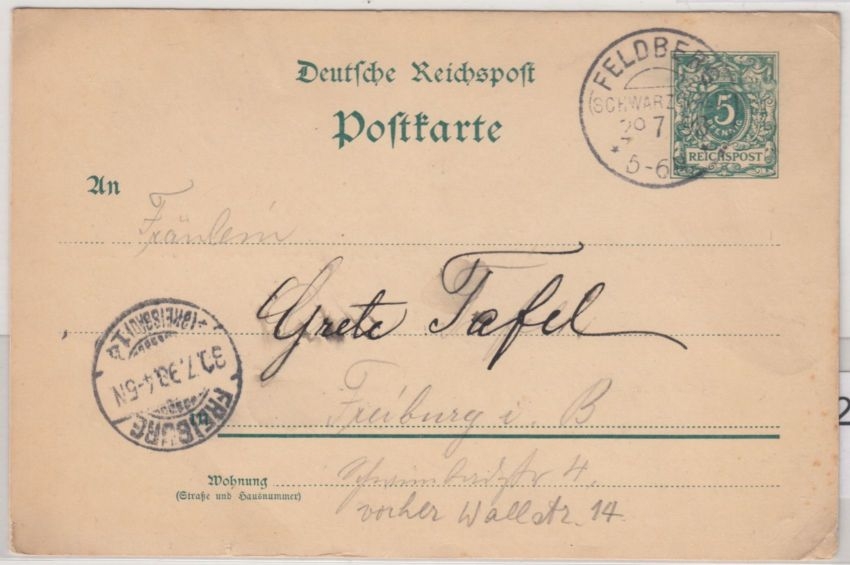 Deutsche Reichspost
Postkarte
FELDBERG
(SCHWARZW
29 7 98
* 5-6 *
5
PFENNIG
REICHSPOST
An
Fräulein
Grete Tafel
Freiburg i. B
Wohnung
(Straße und Hausnummer)
Schwimmbadstr 4.
vorher Wallstr. 14.
FREIBURG
30.7.98.4-5N
(BREISGAU)
2